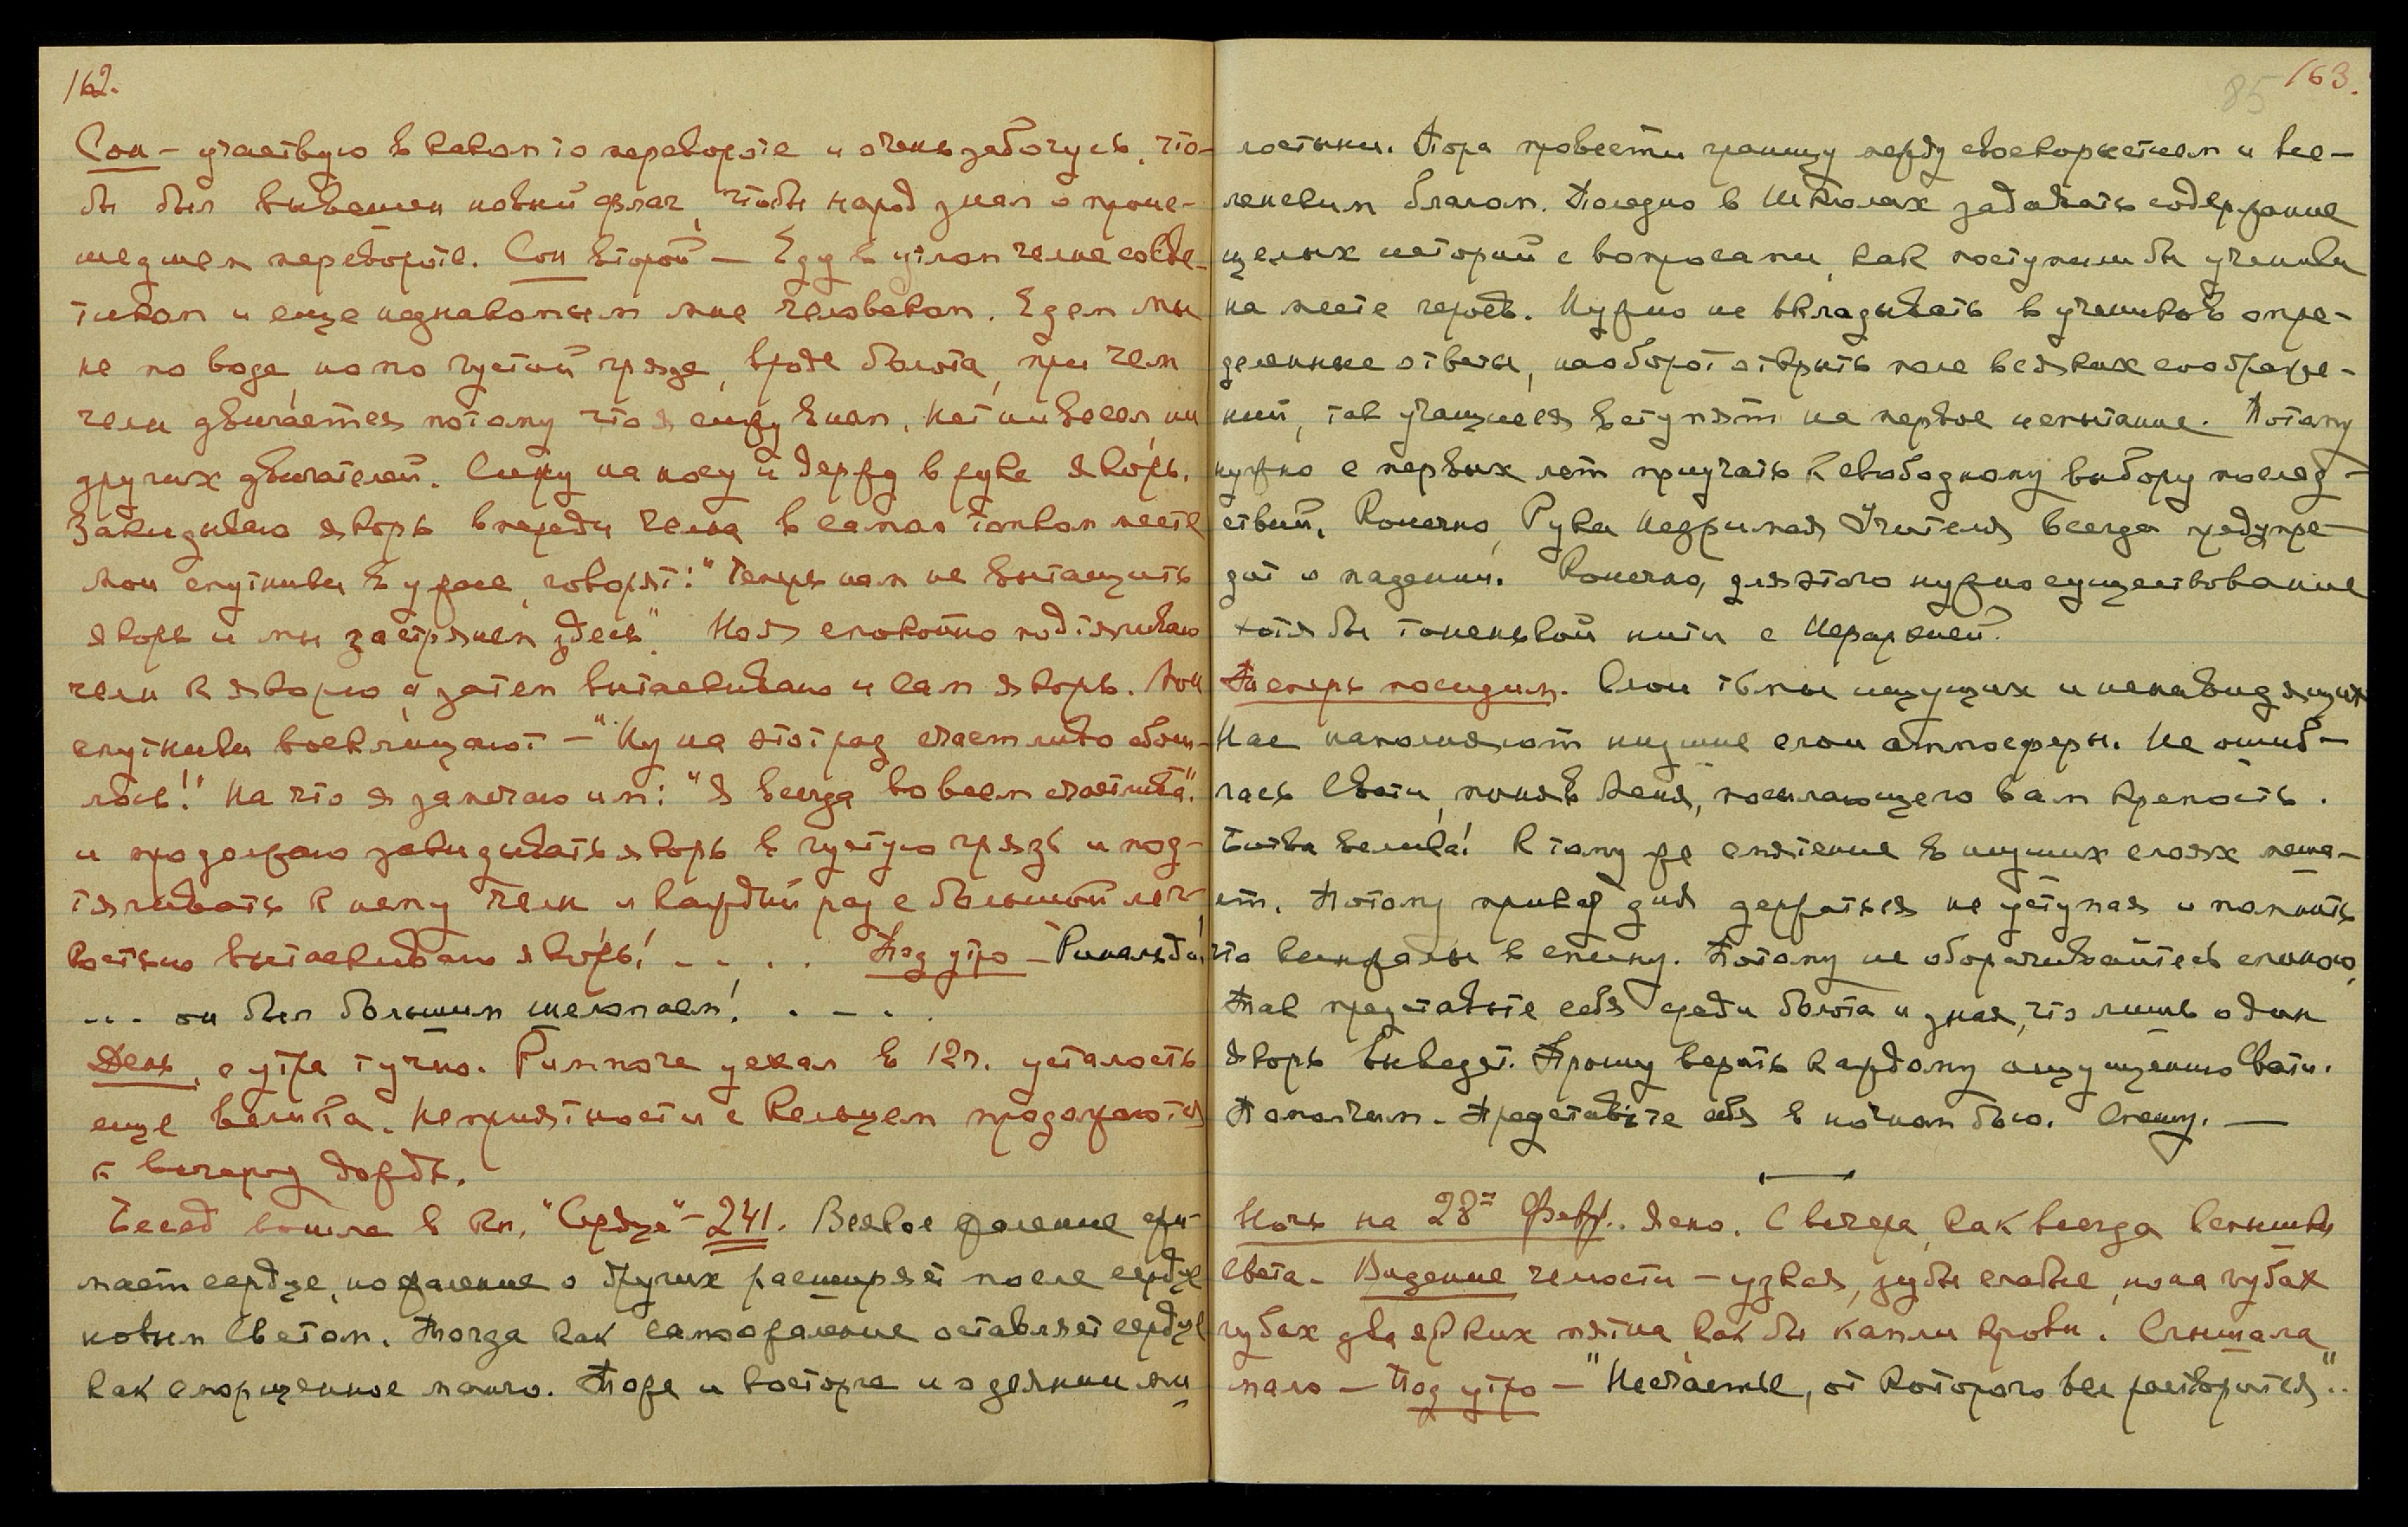 162.
Сон – участвую в каком то перевороте и очень забочусь, что-
бы был вывешен новый флаг, чтобы народ знал о проис-
шедшем перевороте. Сон второй – Еду в утлом челне со Све-
тиком и еще незнакомым мне человеком. Едем мы
не по воде, но по густой грязе, вроде болота, при чем
челн двигается потому что я сижу в нем, нет ни весел, ни
других двигателей. Сижу на носу и держу в руке якорь.
Закидываю якорь впереди челна в самом топком месте
Мои спутники в ужасе, говорят: "Теперь нам не вытащить
якорь и мы застрянем здесь". Но я спокойно подтягиваю
челн к якорю, а затем вытаскиваю и сам якорь. Мои
спутники восклицают – "Ну на этот раз счастливо обош-
лось!" На что я замечаю им: "Я всегда во всем счастлива".
и продолжаю закидывать якорь в густую грязь и под-
тягивать к нему челн и каждый раз с большой лег-
костью вытаскиваю якорь! .... Под утро – Ринальдо!
... он был большим шелопаем! ....
День, с утра тучно. Римпоче уехал в 12 ч. усталость
еще велика. Неприятности с Кельцем продолжаются
к вечеру дождь.
Бесед вошла в кн. "Сердце" – 241. Всякое жаление сжи-
мает сердце, но жаление о других расширяет после сердце
новым Светом. Тогда как саможаление оставляет сердце
как сморщенное манго. Тоже и восторг и одеянии ми-
85 163.
лостыни. Пора провести границу между своекорыстием и все-
ленским благом. Полезно в Школах задавать содержание
целых историй с вопросами, как поступили бы ученики
на месте героев. Нужно не вкладывать в учеников опре-
деленные ответы, наоборот открыть поле всяких соображе-
ний, так учащиеся вступят на первое испытание. Потому
нужно с первых лет приучать к свободному выбору послед-
ствий. Конечно, Рука Незримая Учителя всегда предупре-
дит о падении. Конечно, для этого нужно существование
хотя бы тоненькой нити с Иерархией.
Теперь посидим. Слои тьмы ищущих и ненавидящих
Нас наполняют низшие слои атмосферы. Не ошиб-
лась Свати, поняв Меня, посылающего вам крепость.
Битва велика! К тому же смятение в низших слоях меша-
ет. Потому приказ дня держаться не уступая и помнить
что кинжалы в спину. Потому не оборачивайтесь спиною,
Так представьте себя среди болота и зная, что лишь один
якорь выведет. Прошу верить каждому ощущению Свати.
Помолчим. Представьте себя в ночном бою. Спешу. —
Ночь на 28ое Февр. Ясно. С вечера, как всегда вспышки
света. Видение челюсти – узкая, зубы слабые, но на губах
губах два ярких пятна, как бы капли крови. Слышала
мало – Под утро – "Несчастье, от которого все растворится"..